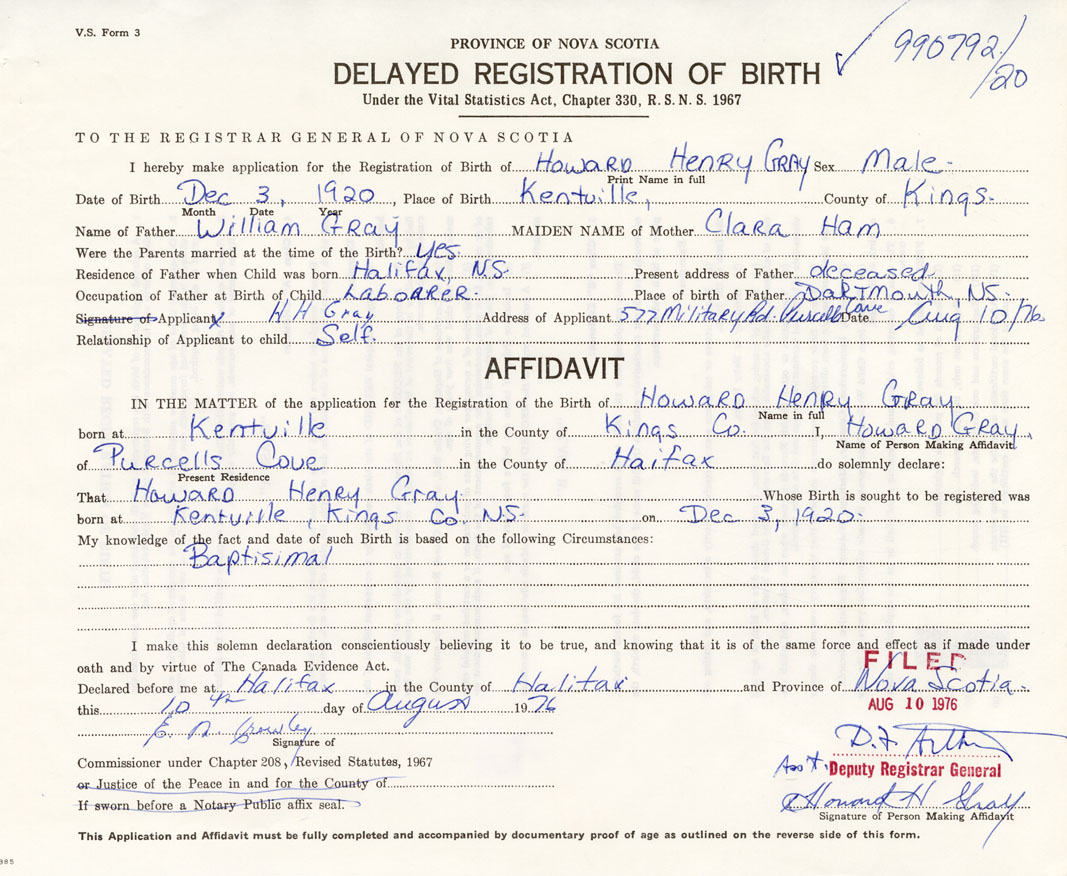 V.S. Form 3
990792/20
PROVINCE OF NOVA SCOTIA
DELAYED REGISTRATION OF BIRTH
Under the Vital Statistics Act, Chapter 330, R. S. N. S. 1967
TO THE REGISTRAR GENERAL OF NOVA SCOTIA
I hereby make application for the Registration of Birth of Howard Henry Gray Sex Male
Print Name in full
Date of Birth Dec 3, 1920, Place of Birth Kentville, County of Kings
Month Date Year
Name of Father William Gray MAIDEN NAME of Mother Clara Ham
Were the Parents married at the time of the Birth? Yes
Residence of Father when Child was born Halifax, NS Present address of Father deceased
Occupation of Father at Birth of Child Laboarer Place of birth of Father Dartmouth, NS
Signature of Applicant H H Gray Address of Applicant 577 Military Rd. Purcells Cove Date Aug 10/76
Relationship of Applicant to child Self.
AFFIDAVIT
IN THE MATTER of the application for the Registration of the Birth of Howard Henry Gray
Name in full
born at Kentville in the County of Kings Co. I, Howard Gray,
Name of Person Making Affidavit
of Purcells Cove in the County of Haifax do solemnly declare:
Present Residence
That Howard Henry Gray Whose Birth is sought to be registered was
born at Kentville, Kings Co. NS on Dec 3, 1920
My knowledge of the fact and date of such Birth is based on the following Circumstances:
Baptisimal
I make this solemn declaration conscientiously believing it to be true, and knowing that it is of the same force and effect as if made under
oath and by virtue of The Canada Evidence Act.
FILED
Declared before me at Halifax in the County of Halifax and Province of Nova Scotia
this 10th day of August 1976
AUG 10 1976
Signature of
Commissioner under Chapter 208, Revised Statutes, 1967
D.F.
Ass't. Deputy Registrar General
or Justice of the Peace in and for the County of
Howard H Gray
If sworn before a Notary Public affix seal.
Signature of Person Making Affidavit
This Application and Affidavit must be fully completed and accompanied by documentary proof of age as outlined on the reverse side of this form.